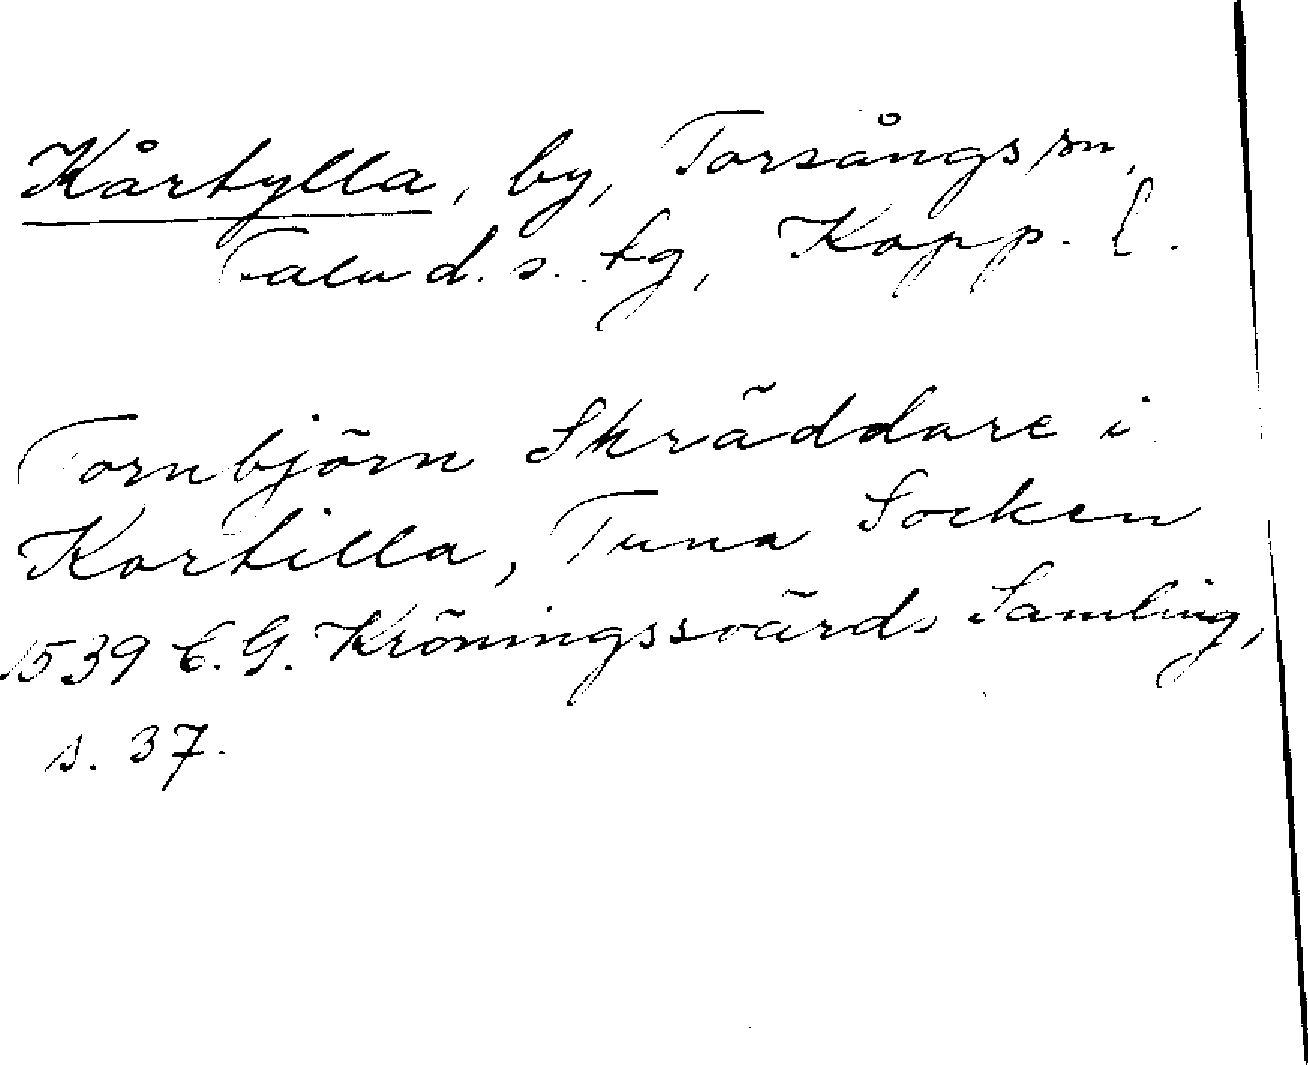 Kårtylla, by, Torsångs sn,
Falu d. s. tg, Kopp. l.
Tornbjörn Skräddare i
Kortilla, Tuna Socken
1539 C. G. Kröningssvärds Samling,
s. 37.